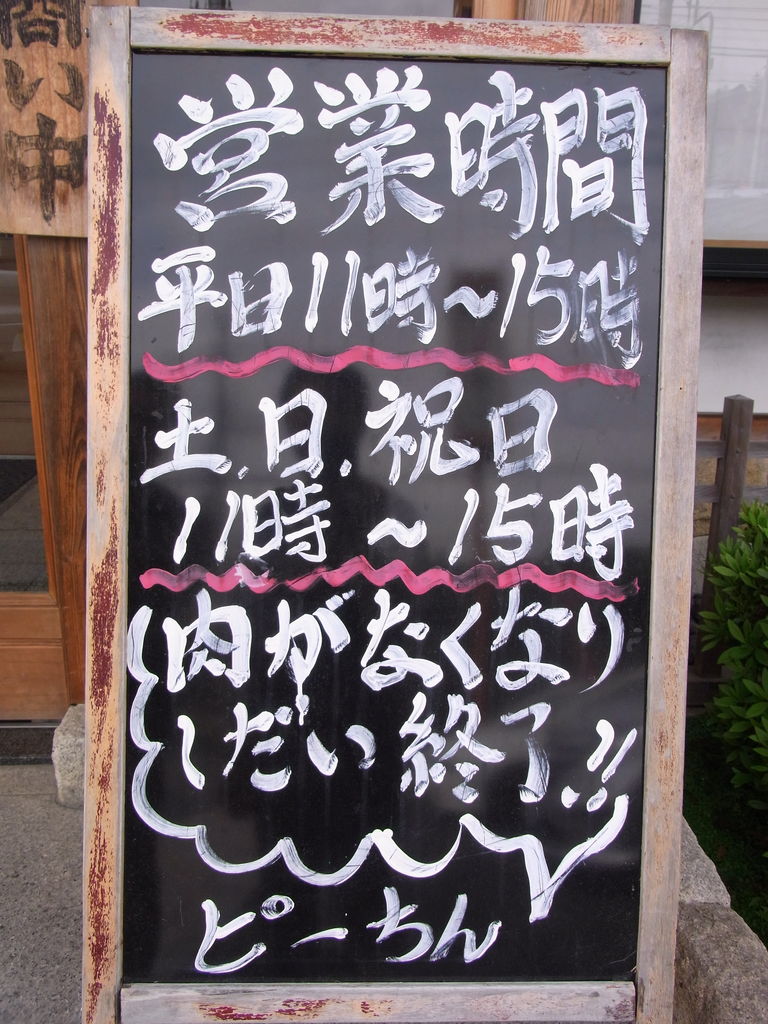 商い中
営業時間
平日11時〜15時
土.日.祝日
11時〜15時
肉がなくなり
しだい終了!!
ピーちん